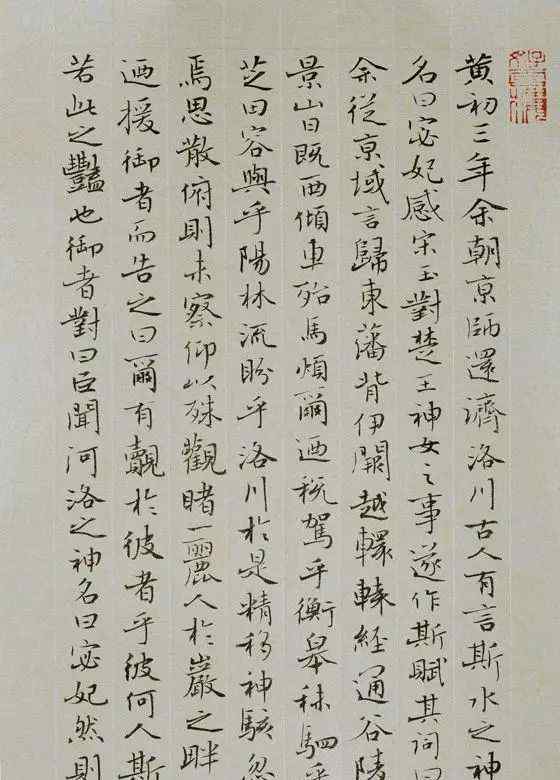 黄初三年余朝京師還濟洛川古人有言斯水之神
名曰宓妃感宋玉對楚王神女之事遂作斯賦其詞曰
余從京域言歸東藩背伊闕越轘轅經通谷陵
景山日既西傾車殆馬煩爾迺税駕乎衡皋秣駟乎
芝田容與乎陽林流盼乎洛川於是精移神駭忽
焉思散俯則未察仰以殊觀睹一麗人於巖之畔
迺援御者而告之曰爾有覿於彼者乎彼何人斯
若此之豔也御者對曰臣聞河洛之神名曰宓妃然則